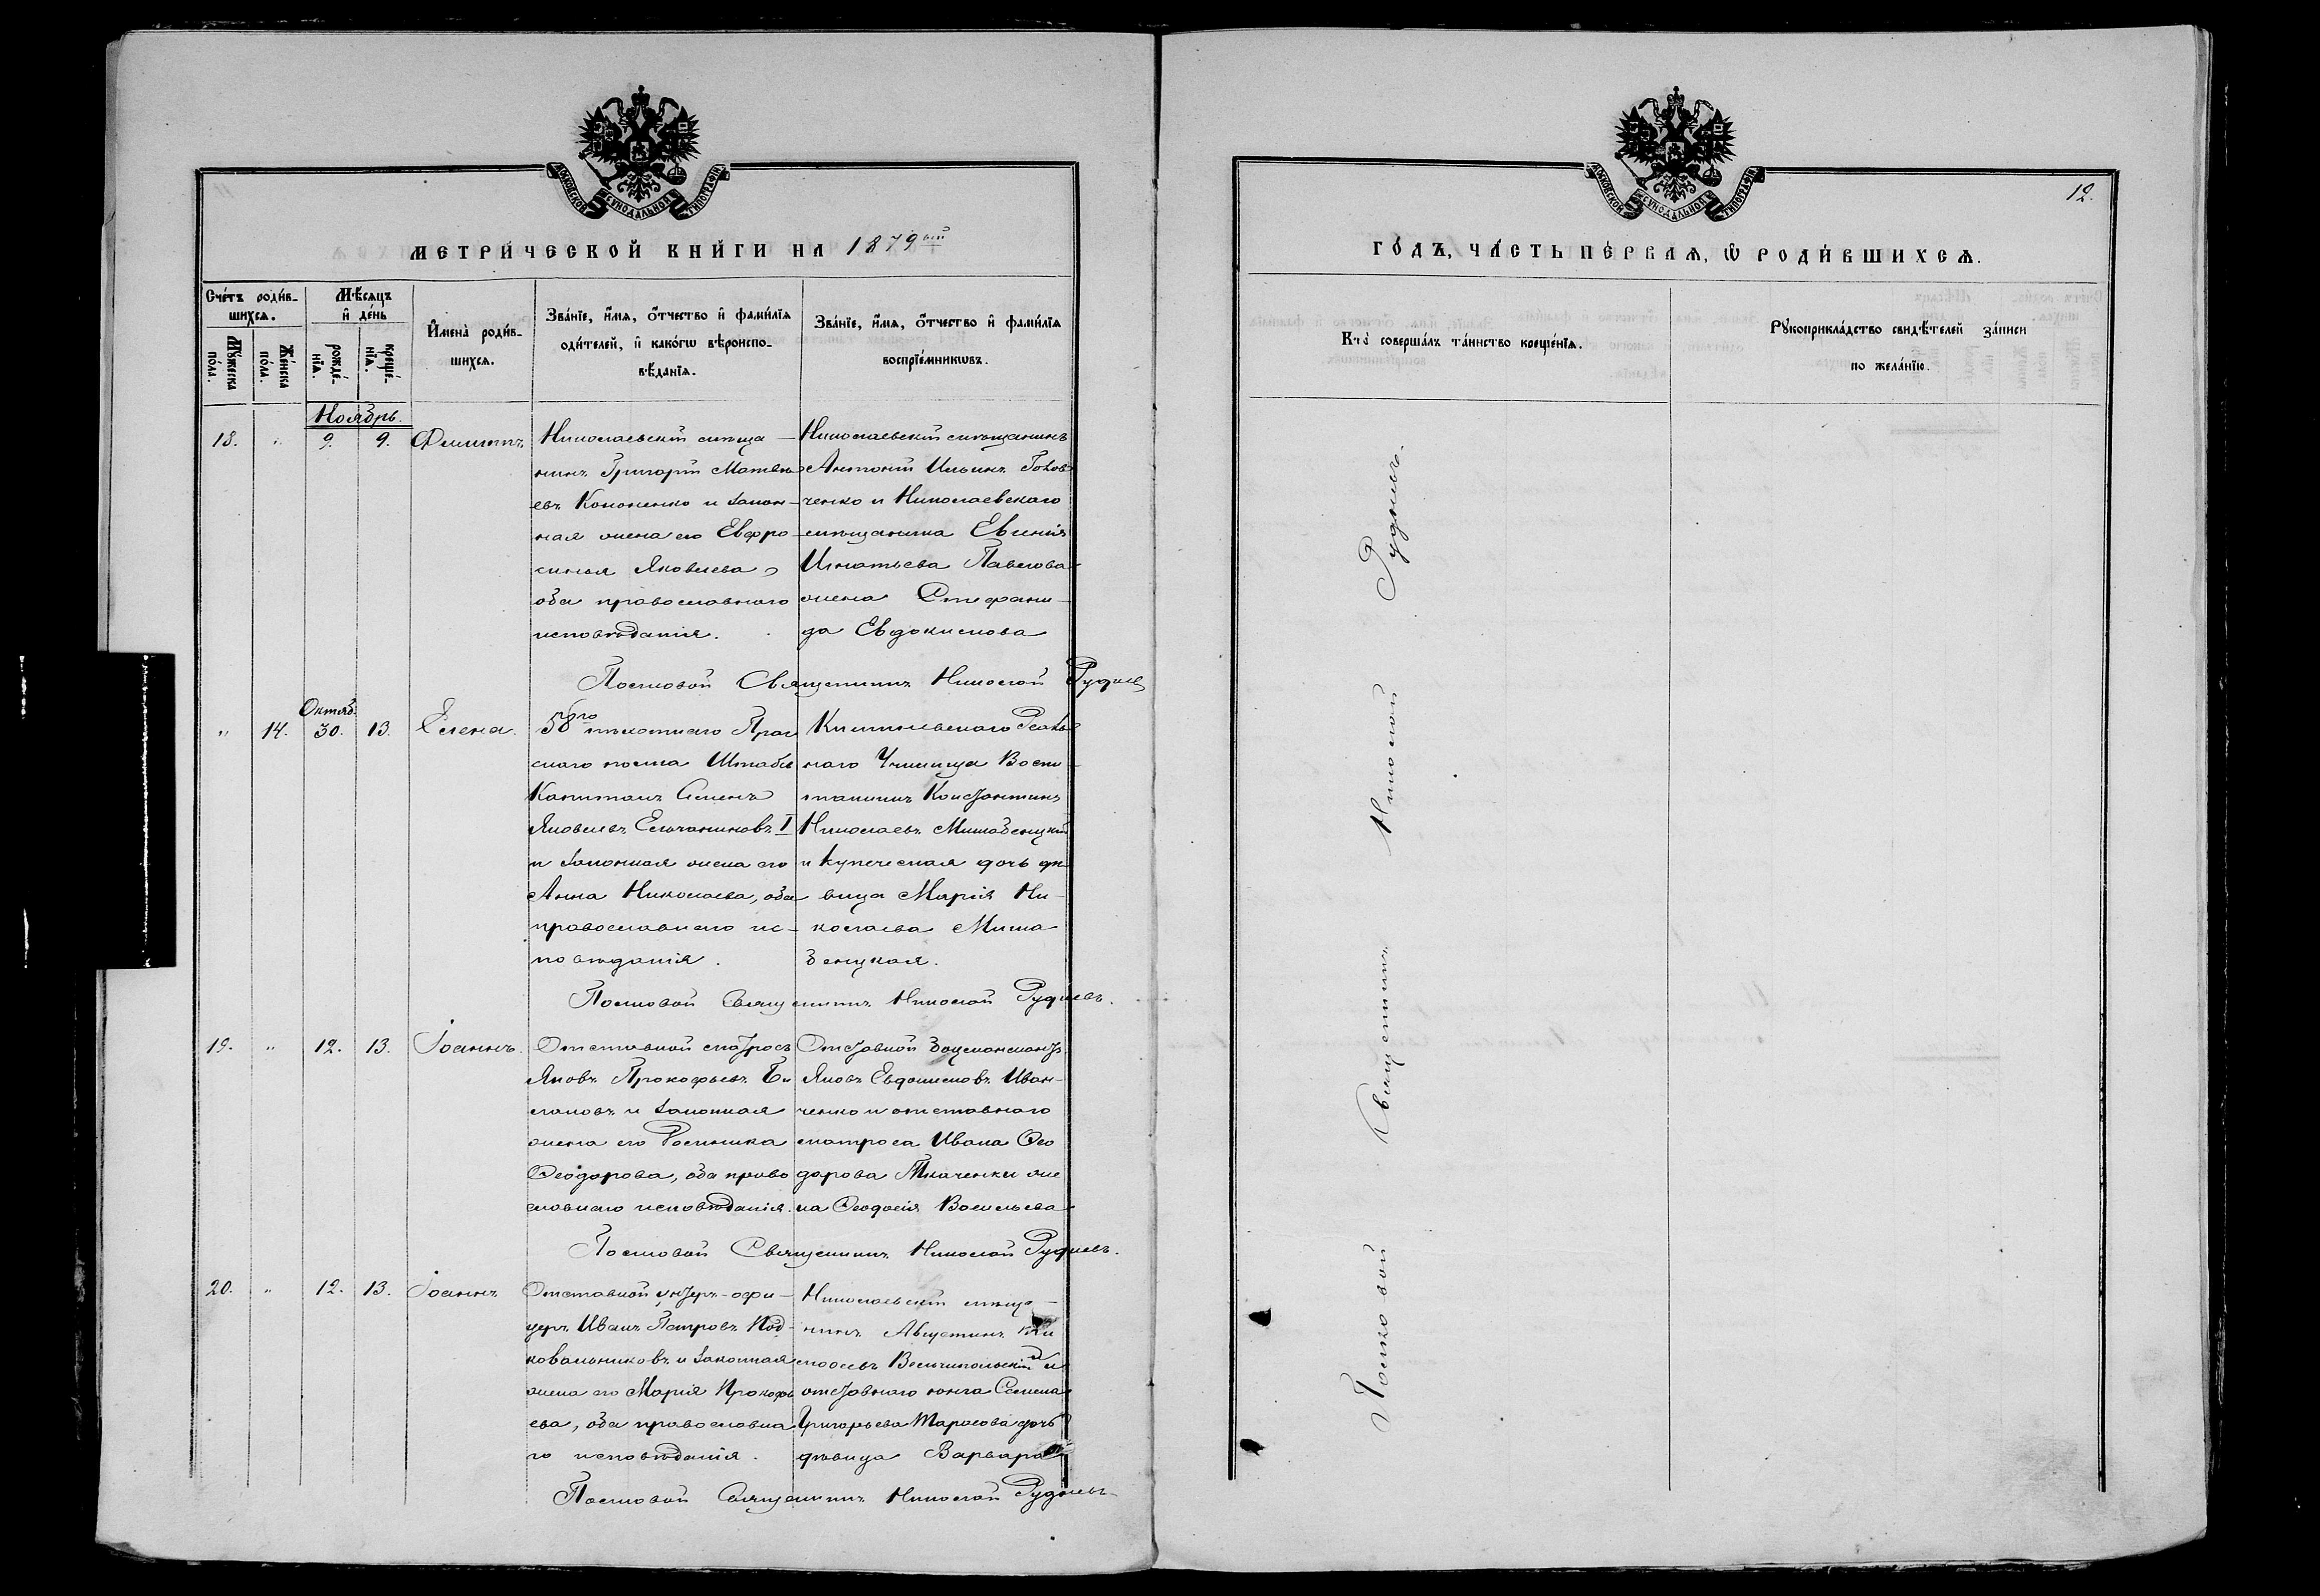 МОСКОВСКОЙ СѴНОДАЛЬНОЙ ТИПОГРАФІИ
МЕТРИ́ЧЕСКОЙ КНИ́ГИ НА 1879ый
Сче́тъ роди́в-
шихсѧ.
Му́жеска по́ла.
Же́нска по́ла.
Мѣ́сѧцъ
и҆ де́нь
рожде́-
нїѧ.
креще́-
нїѧ.
И҆мена̀ роди́в-
шихсѧ.
Зва́нїе, и҆́мѧ, ѻ҆́тчество и҆ фами́лїѧ
роди́телей, и҆ како́гѡ вѣроиспо-
вѣ́данїѧ.
Зва́нїе, и҆́мѧ, ѻ҆́тчество и҆ фами́лїѧ
воспрїе́мникѡвъ.
Ноябрь.
18. „ 9. 9. Филиппъ.
Николаевскій мѣща-
нинъ Григорій Матвѣ-
евъ Кононенко и закон-
ная жена его Евфро-
синья Яковлева,
оба православнаго
исповѣданія.
Николаевскій мѣщанинъ
Антоній Ильинъ Голов
ченко и Николаевскаго
мѣщанина Евгенія
Игнатьева Павлова
жена Стефани-
да Евдокимова
Полковой Священникъ Николай Руднев
„ 14. Октяб. 30. 13. Елена.
58го пѣхотнаго Праг
скаго полка Штабсъ
Капитанъ Семенъ
Яковлевъ Елчаниновъ I
и законная жена его
Анна Николаева, оба
православнаго ис-
повѣданія.
Кишиневскаго Реаль
наго Училища Воспи-
танникъ Константинъ
Николаевъ
и купеческая дочь дѣ
вица Марія Ни-
колаева
Полковой Священникъ Николай Рудневъ.
19. „ 12. 13. Іоаннъ.
Отставной матросъ
Яковъ Прокофьевъ
и законная
жена его
Ѳеодорова, оба право
славнаго исповѣданія.
Отставной боцманматъ
Яковъ Евдокимовъ Иван-
ченко и отставнаго
матроса Ивана Ѳео
дорова Ткаченки же
на Ѳеодосія Васильева
Полковой Священникъ Николай Рудневъ.
20. „ 12. 13. Іоаннъ
Отставной унтеръ-офи-
церъ Иванъ Петровъ Под-
ковальниковъ и законная
жена его Марія Прокофь
ева, оба православна
го исповѣданія.
Николаевскій мѣща-
нинъ Августинъ
и
отставнаго юнга Семена
Григорьева Тарасова дочь
дѣвица Варвара
Полковой Священникъ Николай Рудневъ
МОСКОВСКОЙ СѴНОДАЛЬНОЙ ТИПОГРАФІИ
12.
ГО́ДЪ, ЧА́СТЬ ПЕ́РВАѦ, Ѽ РОДИ́ВШИХСѦ.
Кто̀ соверша́лъ та́инство креще́нїѧ.
Рꙋкоприкла́дство свидѣ́телей за́писи
по жела́нїю.
Полковой Священникъ Николай Рудневъ.